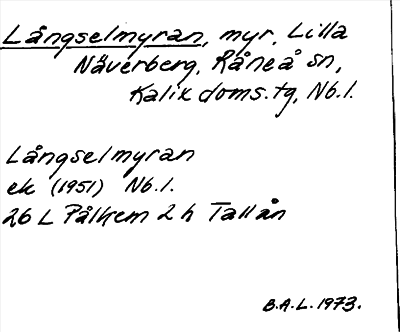 Långselmyran, myr, Lilla
Näverberg, Råneå sn,
Kalix doms.tg, Nb.l.
Långselmyran
ek (1951) Nb.l.
26 L Pålkem 2 h Tallån
B.A.L. 1973.